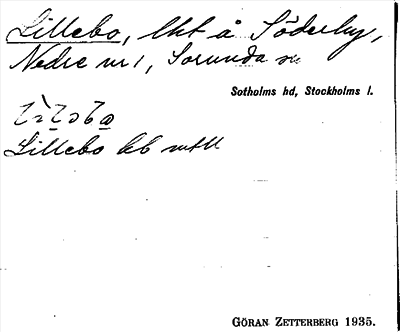 Lillebo, lht å Söderby,
Nedre nr 1, Sorunda sn
Sotholms hd, Stockholms l.
Lillebo
GÖRAN ZETTERBERG 1935.